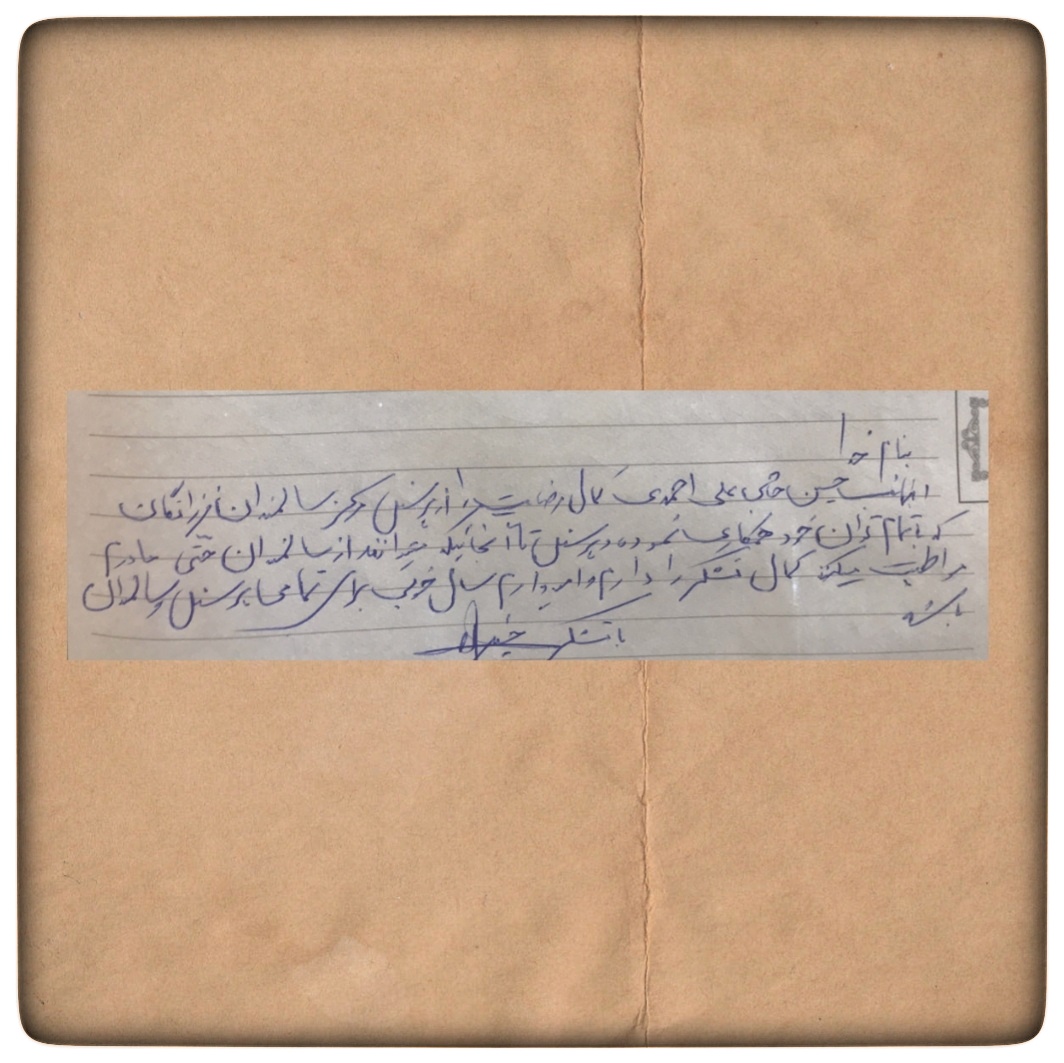 بنام خدا
اینجانب حسین حاجی علی احمدی کمال رضایت را از پرسنل مرکز سالمندان فرزانگان
که با تمام توان خود همکاری نموده و پرسنل تا آنجائیکه از سالمندان حتّی مادرم
مراقبت میکنند کمال تشکر را دارم و امیدوارم سال خوبی برای تمامی پرسنل و سالمندان
باشه
با تشکر